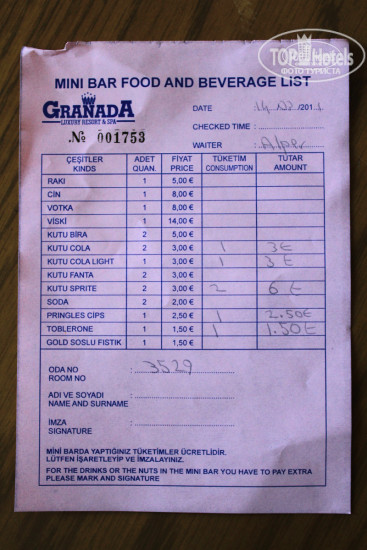 TOPHotels
ФОТО ТУРИСТА
MINI BAR FOOD AND BEVERAGE LIST
GRANADA
LUXURY RESORT & SPA
DATE /201
№ 001753
CHECKED TIME :
WAITER : Alper
ÇEŞİTLER ADET FİYAT TÜKETİM TUTAR
KINDS QUAN. PRICE CONSUMPTION AMOUNT
RAKI 1 5,00 €
CİN 1 8,00 €
VOTKA 1 8,00 €
VİSKİ 1 14,00 €
KUTU BİRA 2 5,00 €
KUTU COLA 2 3,00 € 1 3 €
KUTU COLA LIGHT 1 3,00 € 1 3 €
KUTU FANTA 2 3,00 €
KUTU SPRITE 2 3,00 € 2 6 €
SODA 2 2,00 €
PRINGLES CİPS 1 2,50 € 1 2.50 €
TOBLERONE 1 1,50 € 1 1.50 €
GOLD SOSLU FISTIK 1 1,50 €
ODA NO : 3529
ROOM NO
ADI VE SOYADI :
NAME AND SURNAME
İMZA :
SIGNATURE
MİNİ BARDA YAPTIĞINIZ TÜKETİMLER ÜCRETLİDİR.
LÜTFEN İŞARETLEYİP VE İMZALAYINIZ.
FOR THE DRINKS OR THE NUTS IN THE MINI BAR YOU HAVE TO PAY EXTRA
PLEASE MARK AND SIGNATURE